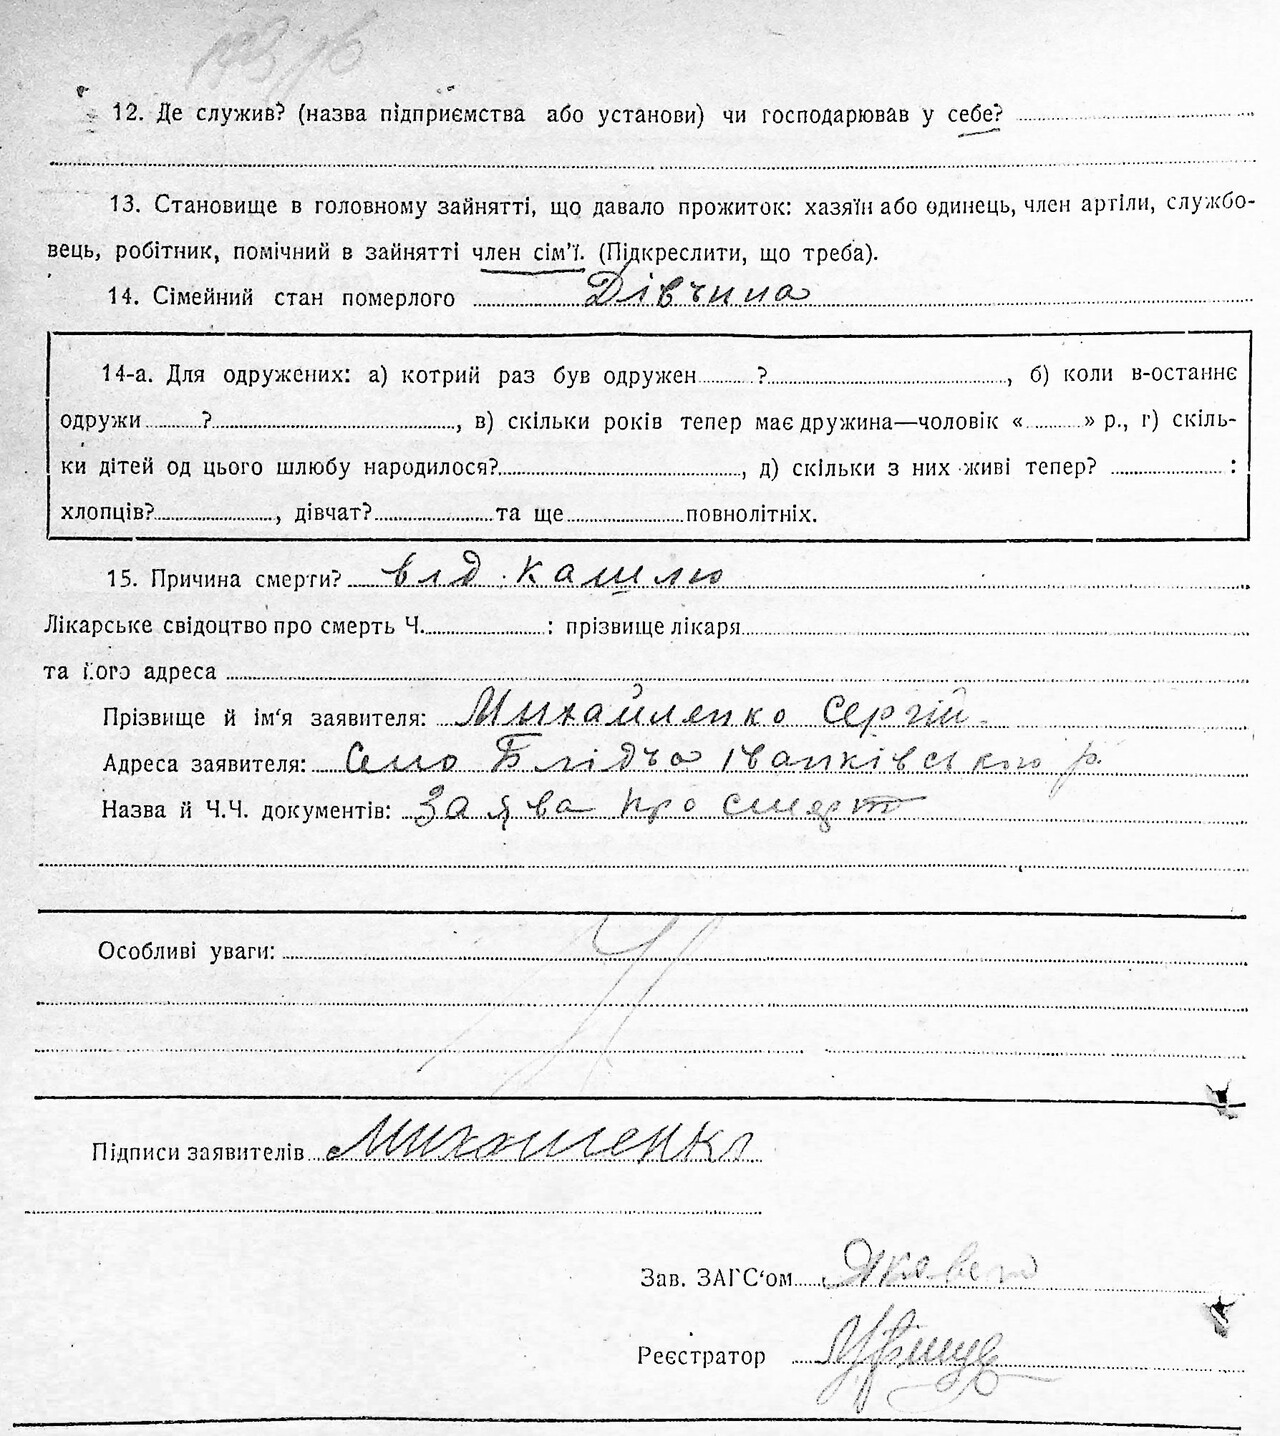 12. Де служив? (назва підприємства або установи) чи господарював у себе?
13. Становище в головному зайнятті, що давало прожиток: хазяїн або одинець, член артіли, службо-
вець, робітник, помічний в зайнятті член сім'ї. (Підкреслити, що треба).
14. Сімейний стан померлого Дівчина
14-а. Для одружених: а) котрий раз був одружен ? , б) коли в-останнє
одружи ? , в) скільки років тепер має дружина—чоловік « » р., г) скіль-
ки дітей од цього шлюбу народилося? , д) скільки з них живі тепер? :
хлопців? , дівчат? та ще повнолітніх.
15. Причина смерти? від кашлю
Лікарське свідоцтво про смерть Ч. : прізвище лікаря
та його адреса
Прізвище й ім'я заявителя: Михайленко Сергій
Адреса заявителя: Село Блідча Іванківського р.
Назва й Ч.Ч. документів: Заява про смерт
Особливі уваги:
Підписи заявителів Михайленко
Зав. ЗАГС'ом
Реєстратор